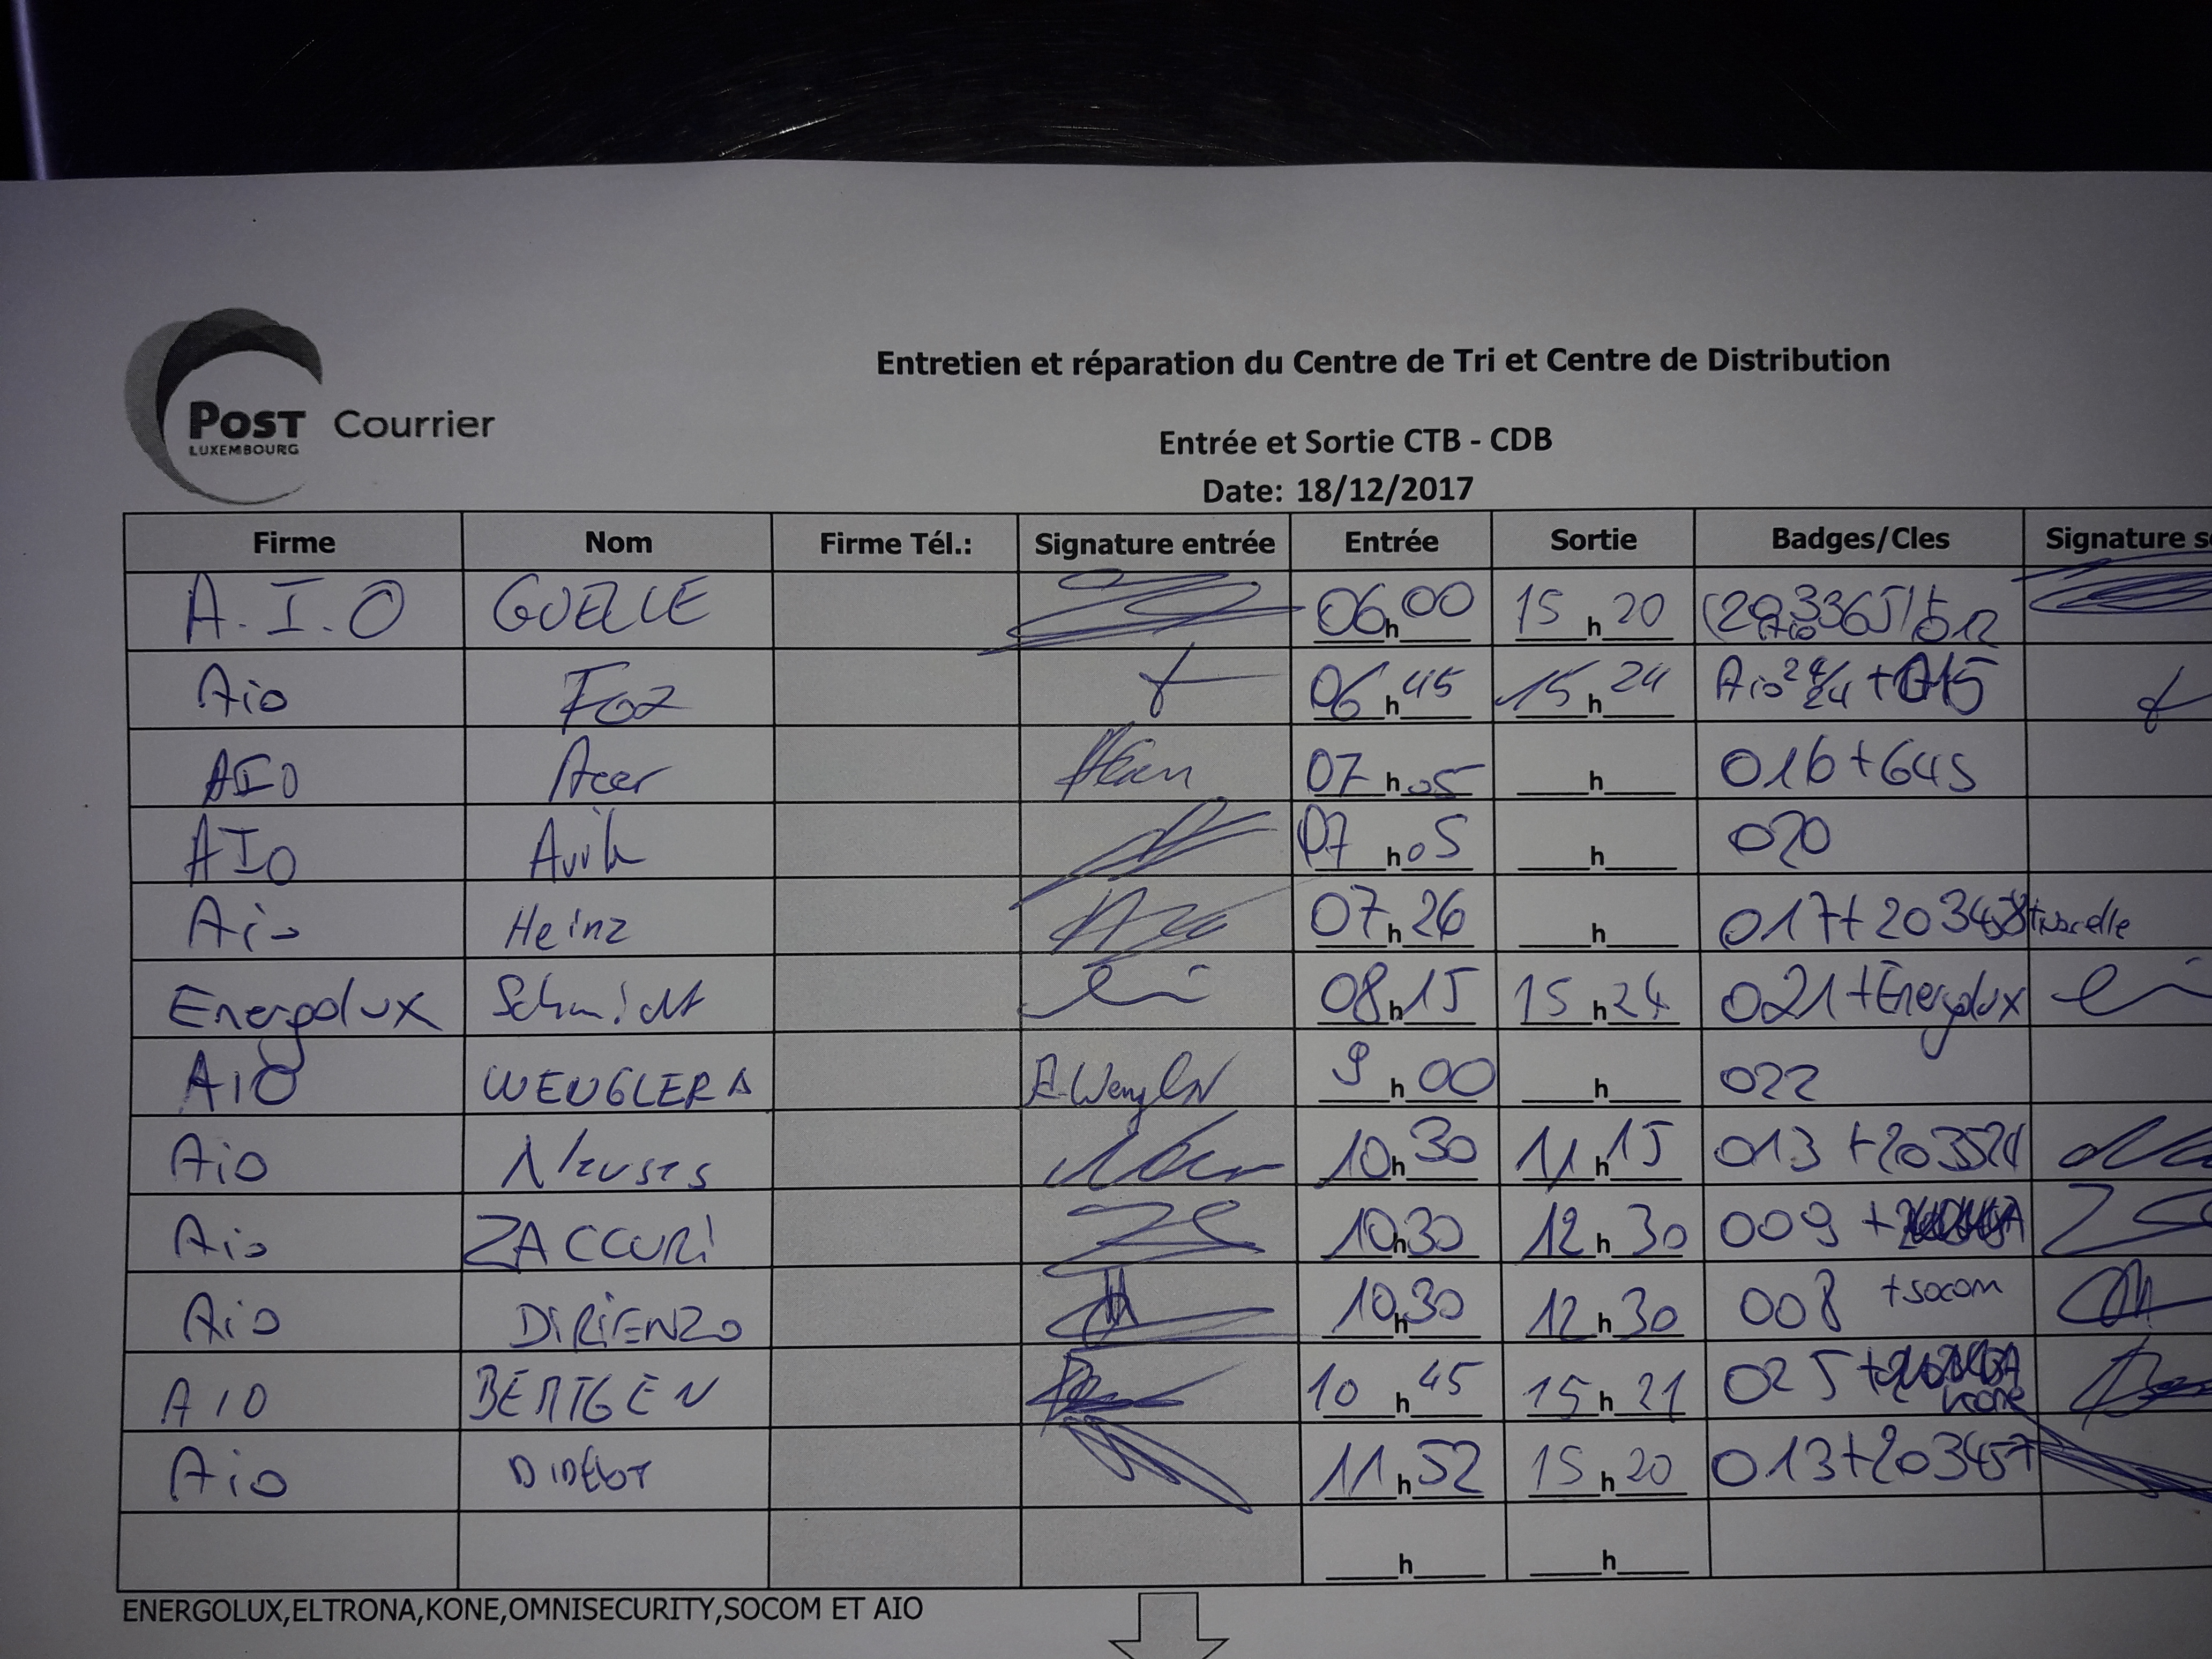 POST Courrier
LUXEMBOURG
Entretien et réparation du Centre de Tri et Centre de Distribution
Entrée et Sortie CTB - CDB
Date: 18/12/2017
Firme Nom Firme Tél.: Signature entrée Entrée Sortie Badges/Cles Signature
A.I.O GUELLE 06h00 15h20
Aio Foz 06h45 15h24 Aio 24/24 + 015
AIO Acer 07h05 h 016+645
AIO 07h05 h 020
Aio Heinz 07h26 h 017+203458
Energolux Schmidt 08h15 15h24 021+Energolux
AIO WENGLER A R.Wengler 9h00 h 022
Aio 10h30 11h15 013
Aio ZACCURI 10h30 12h30 009 +
Aio DIRIENZO 10h30 12h30 008 +socom
AIO BERTGEN 10h45 15h21 025 + kone
Aio DIDELOT 11h52 15h20 013+203457
h h
ENERGOLUX,ELTRONA,KONE,OMNISECURITY,SOCOM ET AIO